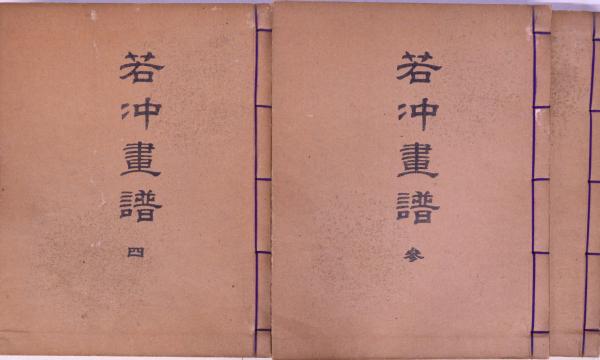 若冲畫譜 參
若冲畫譜 四